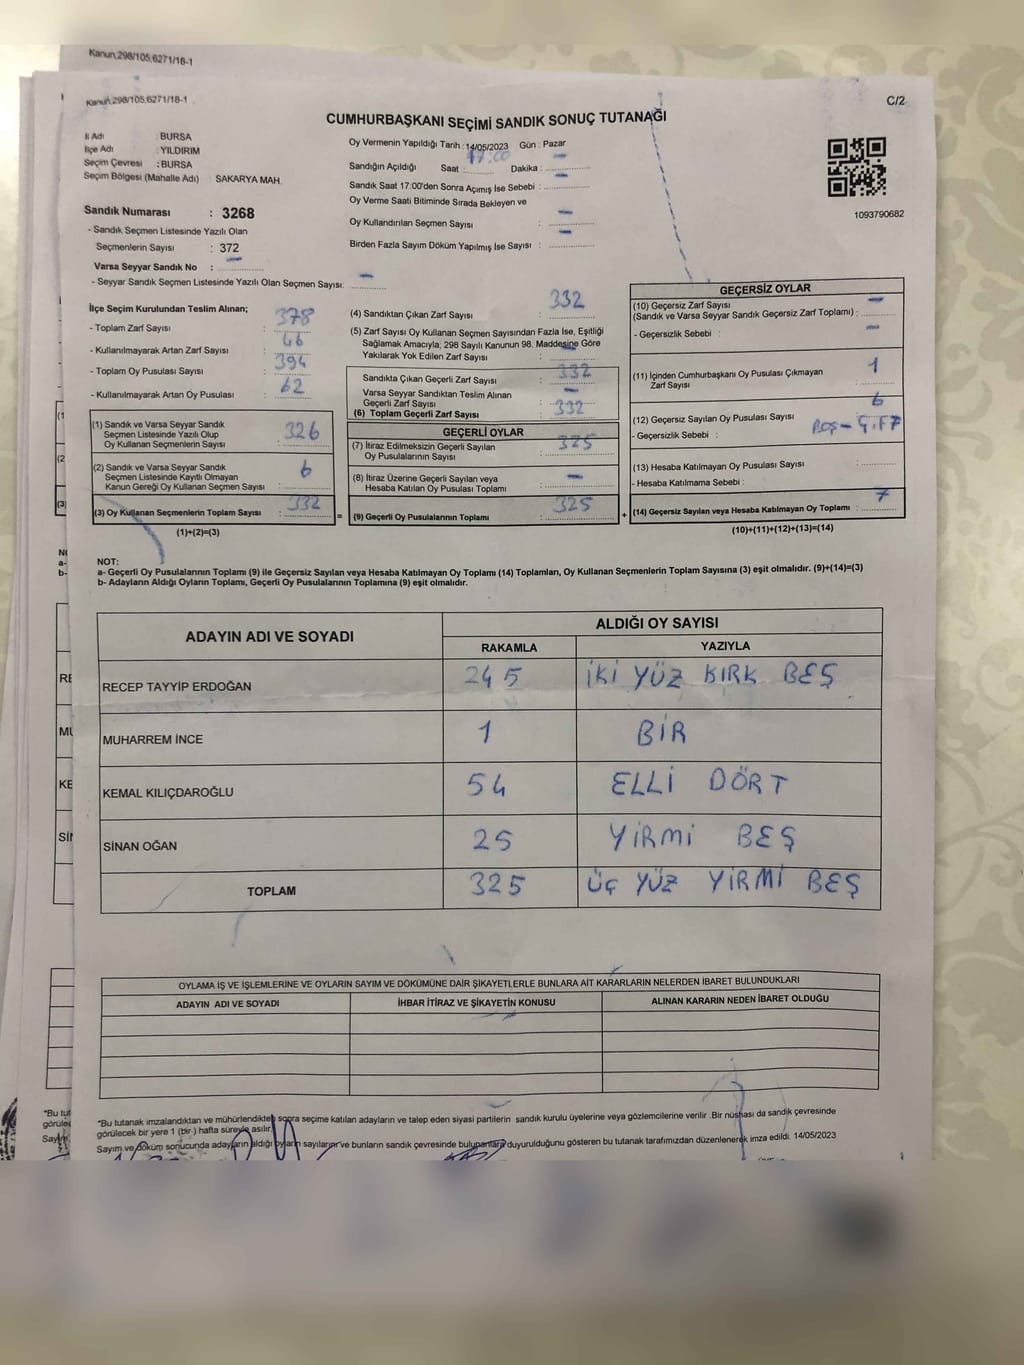 Kanun,298/105,6271/18-1
Kanun,298/105,6271/18-1
C/2
CUMHURBAŞKANI SEÇİMİ SANDIK SONUÇ TUTANAĞI
İl Adı : BURSA
İlçe Adı : YILDIRIM
Seçim Çevresi : BURSA
Seçim Bölgesi (Mahalle Adı) : SAKARYA MAH.
Sandık Numarası : 3268
- Sandık Seçmen Listesinde Yazılı Olan
Seçmenlerin Sayısı : 372
Varsa Seyyar Sandık No : –
- Seyyar Sandık Seçmen Listesinde Yazılı Olan Seçmen Sayısı: –
Oy Vermenin Yapıldığı Tarih : 14/05/2023 Gün : Pazar
Sandığın Açıldığı Saat : 17:00 Dakika : –
Sandık Saat 17:00'den Sonra Açımış İse Sebebi : –
Oy Verme Saati Bitiminde Sırada Bekleyen ve
Oy Kullandırılan Seçmen Sayısı : –
Birden Fazla Sayım Döküm Yapılmış İse Sayısı : –
1093790682
İlçe Seçim Kurulundan Teslim Alınan;
- Toplam Zarf Sayısı : 378
- Kullanılmayarak Artan Zarf Sayısı : 46
- Toplam Oy Pusulası Sayısı : 394
- Kullanılmayarak Artan Oy Pusulası : 62
(1) Sandık ve Varsa Seyyar Sandık
Seçmen Listesinde Yazılı Olup
Oy Kullanan Seçmenlerin Sayısı : 326
(2) Sandık ve Varsa Seyyar Sandık
Seçmen Listesinde Kayıtlı Olmayan
Kanun Gereği Oy Kullanan Seçmen Sayısı : 6
(3) Oy Kullanan Seçmenlerin Toplam Sayısı : 332
(1)+(2)=(3)
=
(4) Sandıktan Çıkan Zarf Sayısı : 332
(5) Zarf Sayısı Oy Kullanan Seçmen Sayısından Fazla İse, Eşitliği
Sağlamak Amacıyla; 298 Sayılı Kanunun 98. Maddesine Göre
Yakılarak Yok Edilen Zarf Sayısı : –
Sandıkta Çıkan Geçerli Zarf Sayısı : 332
Varsa Seyyar Sandıktan Teslim Alınan
Geçerli Zarf Sayısı : –
(6) Toplam Geçerli Zarf Sayısı : 332
GEÇERLİ OYLAR
(7) İtiraz Edilmeksizin Geçerli Sayılan
Oy Pusulalarının Sayısı : 325
(8) İtiraz Üzerine Geçerli Sayılan veya
Hesaba Katılan Oy Pusulası Toplamı : –
(9) Geçerli Oy Pusulalarının Toplamı : 325
+
GEÇERSİZ OYLAR
(10) Geçersiz Zarf Sayısı
(Sandık ve Varsa Seyyar Sandık Geçersiz Zarf Toplamı) : –
- Geçersizlik Sebebi : –
(11) İçinden Cumhurbaşkanı Oy Pusulası Çıkmayan
Zarf Sayısı : 1
(12) Geçersiz Sayılan Oy Pusulası Sayısı : 6
- Geçersizlik Sebebi : BOŞ-ÇİFT
(13) Hesaba Katılmayan Oy Pusulası Sayısı :
- Hesaba Katılmama Sebebi :
(14) Geçersiz Sayılan veya Hesaba Katılmayan Oy Toplamı : 7
(10)+(11)+(12)+(13)=(14)
NOT:
a- Geçerli Oy Pusulalarının Toplamı (9) ile Geçersiz Sayılan veya Hesaba Katılmayan Oy Toplamı (14) Toplamları, Oy Kullanan Seçmenlerin Toplam Sayısına (3) eşit olmalıdır. (9)+(14)=(3)
b- Adayların Aldığı Oyların Toplamı, Geçerli Oy Pusulalarının Toplamına (9) eşit olmalıdır.
ADAYIN ADI VE SOYADI
ALDIĞI OY SAYISI
RAKAMLA YAZIYLA
RECEP TAYYİP ERDOĞAN 245 İKİ YÜZ KIRK BEŞ
MUHARREM İNCE 1 BİR
KEMAL KILIÇDAROĞLU 54 ELLİ DÖRT
SİNAN OĞAN 25 YİRMİ BEŞ
TOPLAM 325 ÜÇ YÜZ YİRMİ BEŞ
OYLAMA İŞ VE İŞLEMLERİNE VE OYLARIN SAYIM VE DÖKÜMÜNE DAİR ŞİKAYETLERLE BUNLARA AİT KARARLARIN NELERDEN İBARET BULUNDUKLARI
ADAYIN ADI VE SOYADI İHBAR İTİRAZ VE ŞİKAYETİN KONUSU ALINAN KARARIN NEDEN İBARET OLDUĞU
*Bu tutanak imzalandıktan ve mühürlendikten sonra seçime katılan adayların ve talep eden siyasi partilerin sandık kurulu üyelerine veya gözlemcilerine verilir .Bir nüshası da sandık çevresinde
görülecek bir yere 1 (bir-) hafta süreyle asılır.
Sayım ve döküm sonucunda adayların aldığı oyların sayılarını ve bunların sandık çevresinde bulunanlara duyurulduğunu gösteren bu tutanak tarafımızdan düzenlenerek imza edildi. 14/05/2023